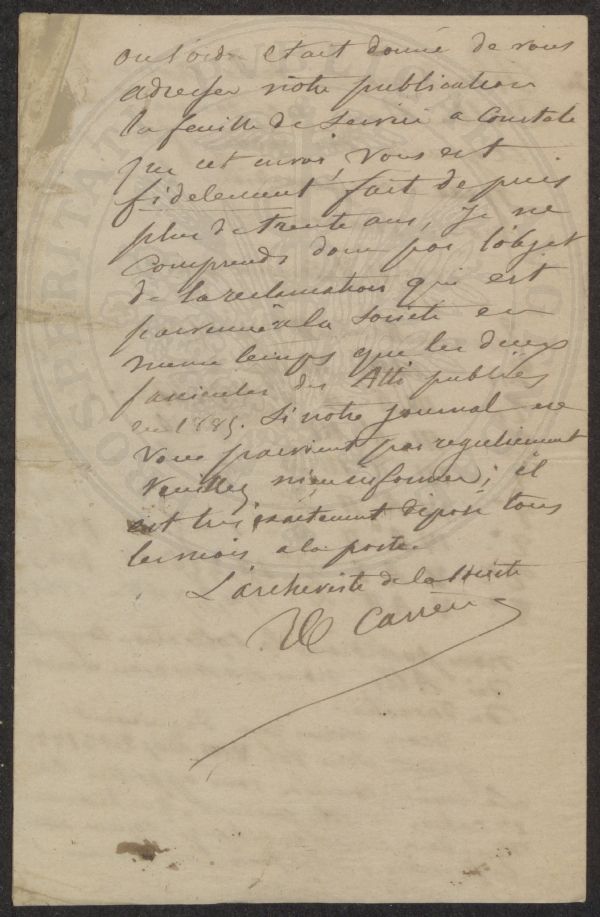 ou l'ordre etait donné de vous
adresser notre publication
la feuille de service a constaté
que cet envoi, vous est
fidelement fait depuis
plus de trente ans, Je ne
comprends donc pas l'objet
de la reclamation qui est
parvenue à la Société en
meme temps que les deux
fascicules des Atti publiés
en 1885. Si notre journal ne
vous parvient pas regulierement
veuillez m'en informer; il
est très exactement déposé tous
les mois a la poste.
L'archiviste de la Société
Carrein
PROSPERITATI PUBLICAE